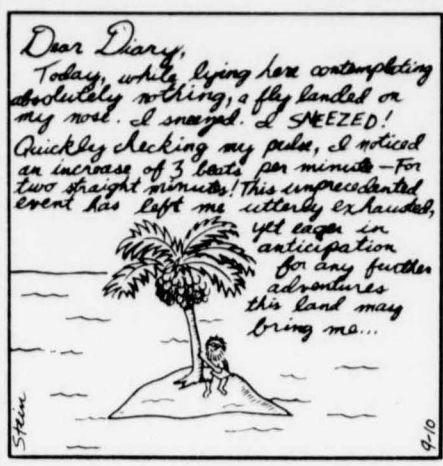 Dear Diary,
Today, while lying here contemplating
absolutely nothing, a fly landed on
my nose. I sneezed. I SNEEZED!
Quickly checking my pulse, I noticed
an increase of 3 beats per minute—For
two straight minutes! This unprecedented
event has left me utterly exhausted,
yet eager in
anticipation
for any further
adventures
this land may
bring me...
Stein
9-10